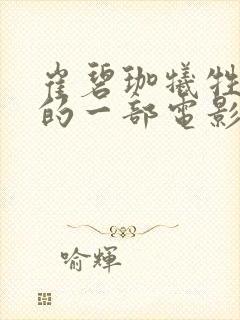 崔碧珈犧牲
的一部電影
喻輝